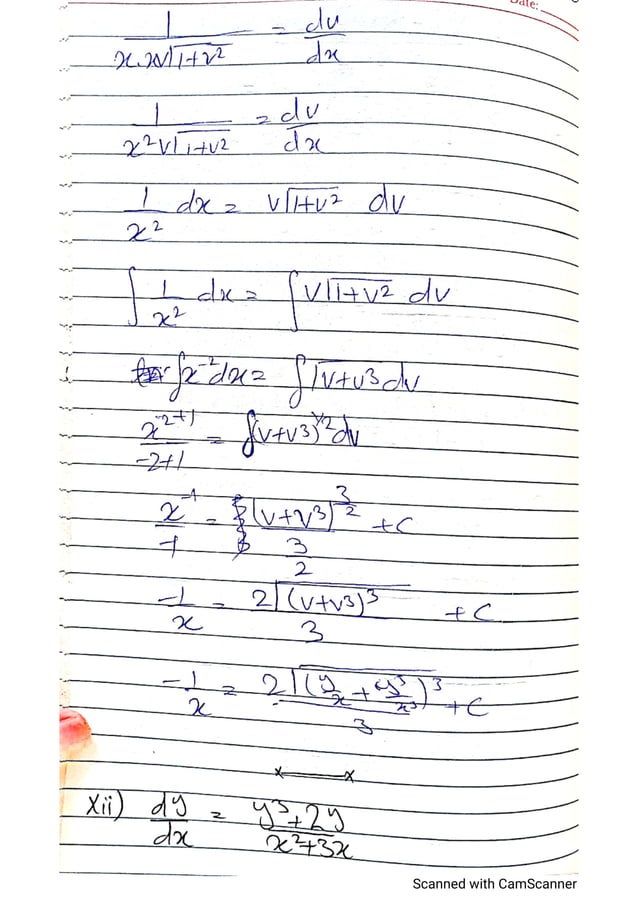 Date:
1/(x.x√(1+v²)) = dv/dx
1/(x²v√(1+v²)) = dv/dx
1/x² dx = v√(1+v²) dv
∫ 1/x² dx = ∫ v√(1+v²) dv
∫x⁻²dx = ∫√(v+v3) dv
x⁻²⁺¹/(-2+1) = ∫(v+v3)^(1/2) dv
x⁻¹/-1 = (v+v³)^(3/2)/(3/2) + C
-1/x = 2√((v+v3)³)/3 + C
-1/x = 2√((y/x + y³/x³)³)/3 + C
x———x
Xii) dy/dx = (y³+2y)/(x²+3x)
Scanned with CamScanner